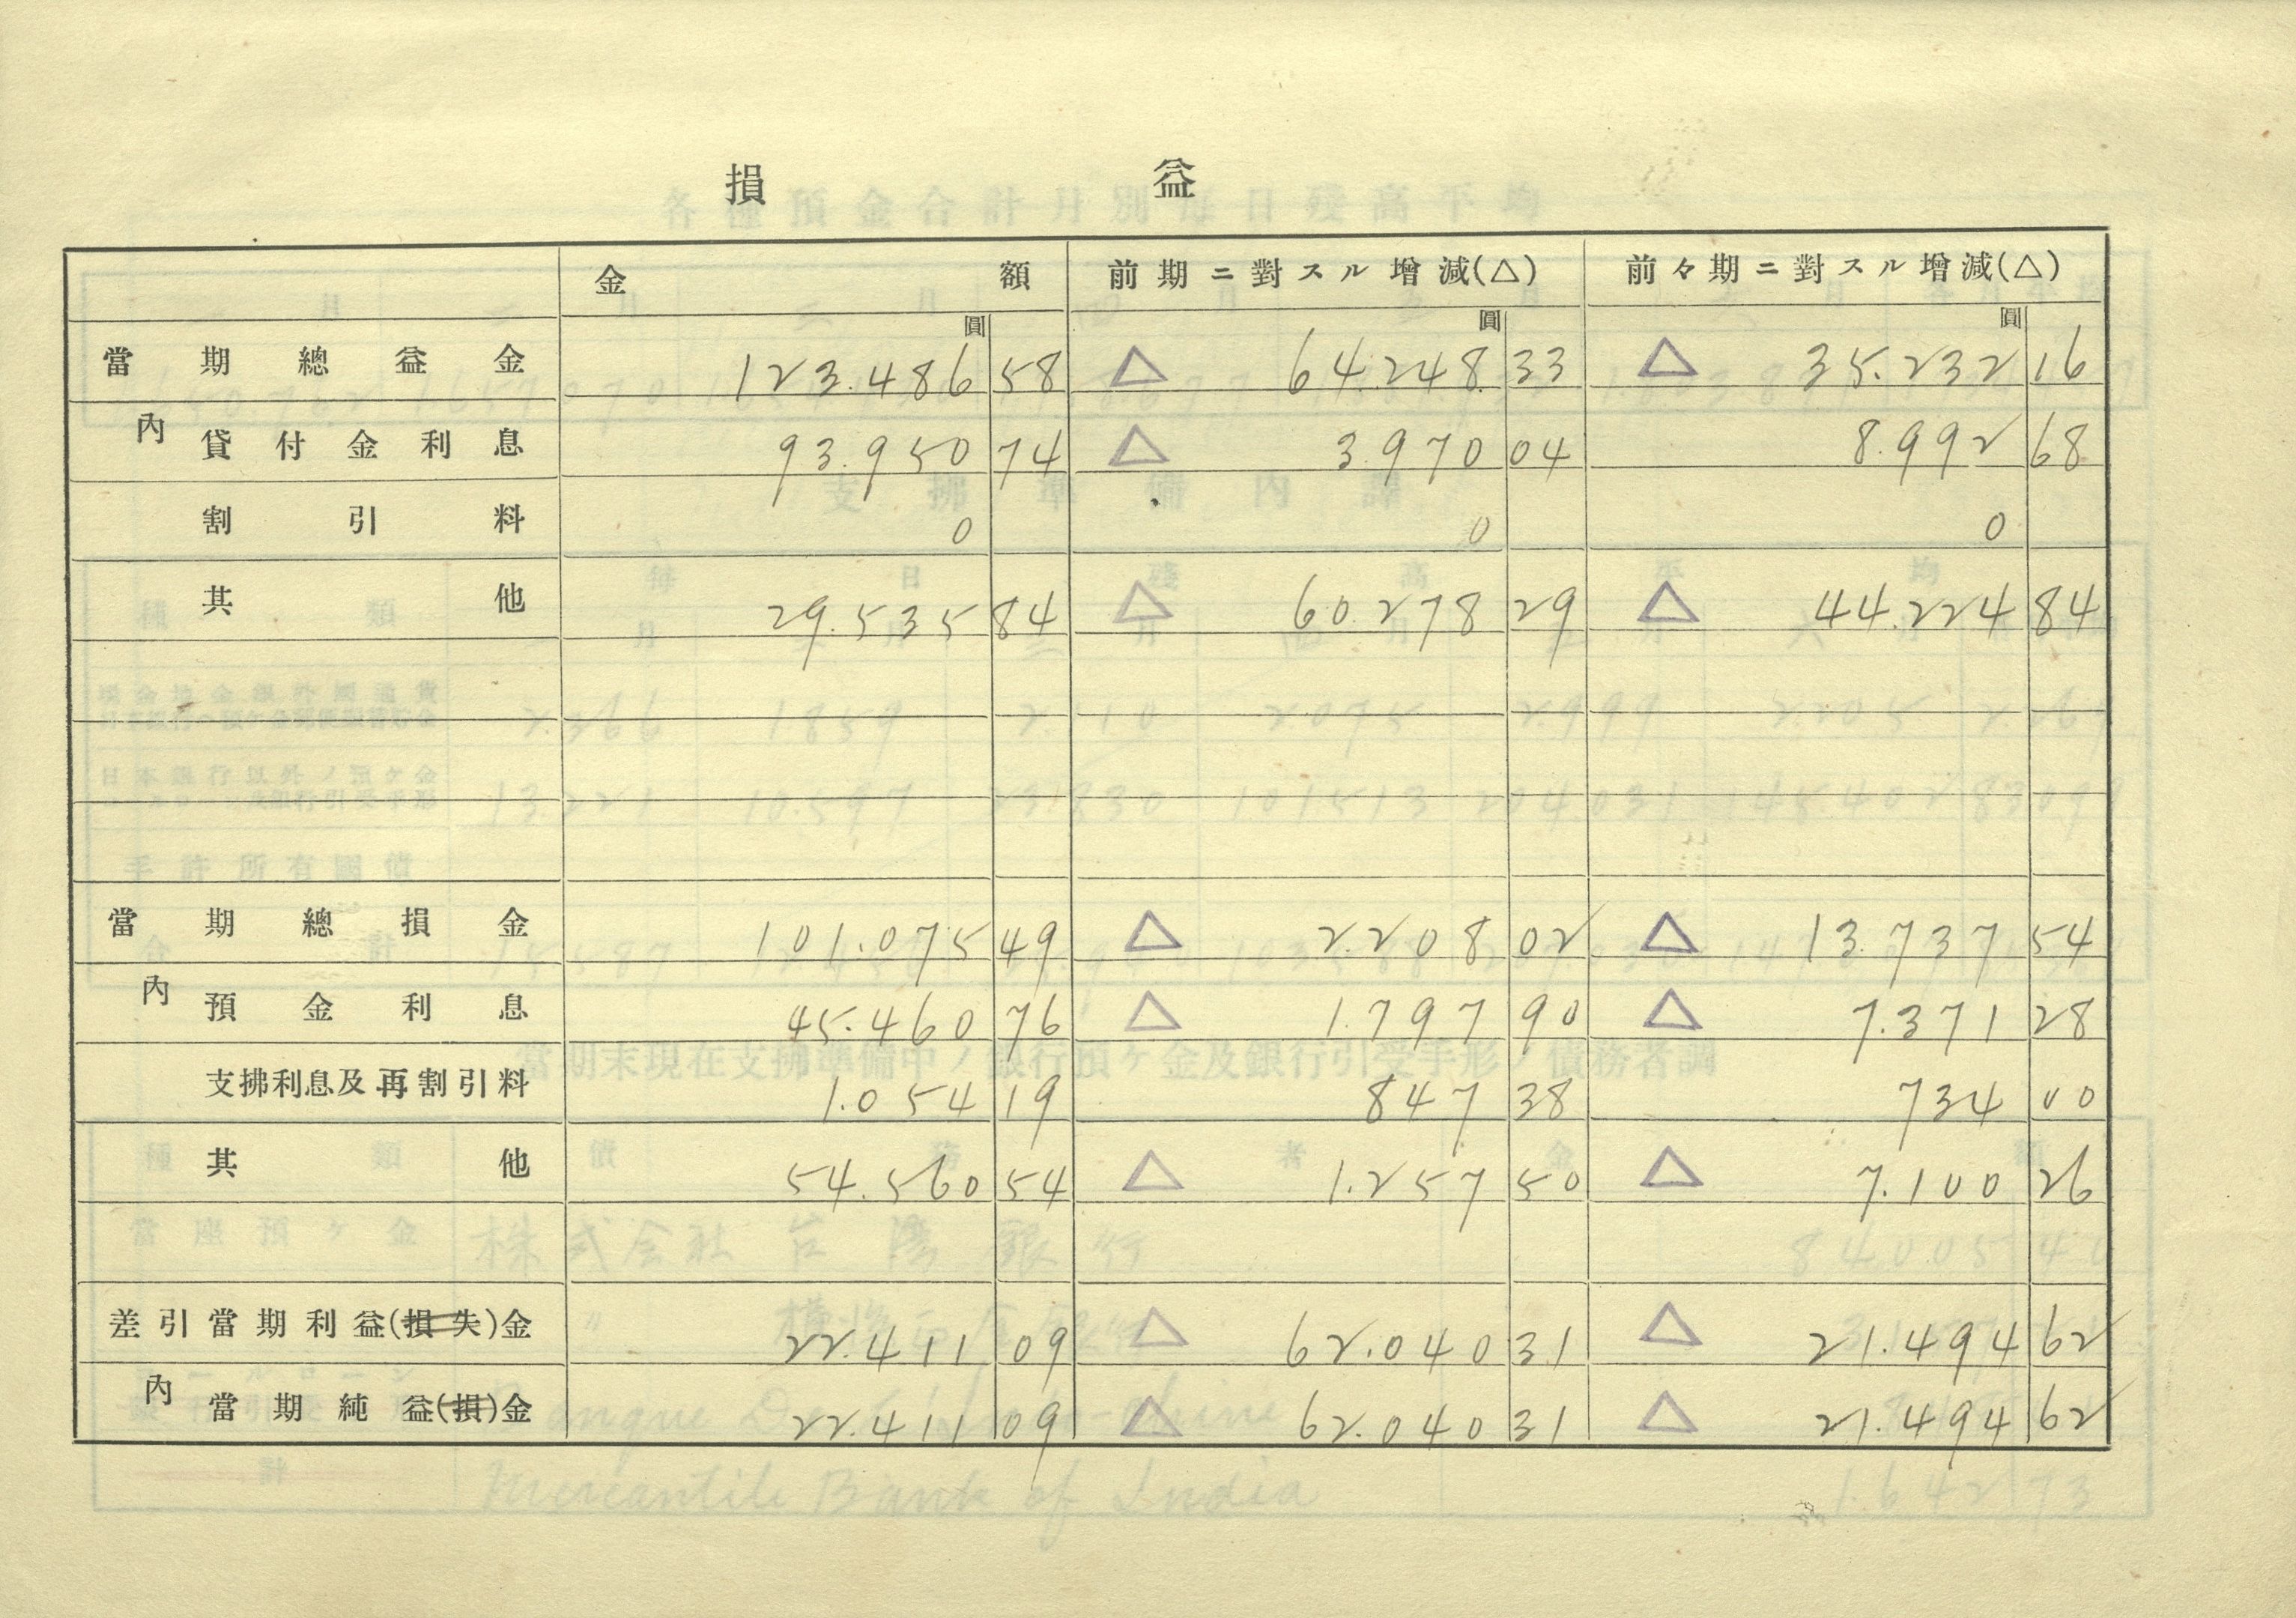 損益
金額 前期ニ對スル増減(△) 前々期ニ對スル増減(△)
圓 圓 圓
當期總益金 123.486 58 △ 64.248 33 △ 35.232 16
內 貸付金利息 93.950 74 △ 3.970 04 8.992 68
割引料 0 0 0
其他 29.535 84 △ 60.278 29 △ 44.224 84
當期總損金 101.075 49 △ 2.208 02 △ 13.737 54
內 預金利息 45.460 76 △ 1.797 90 △ 7.371 28
支拂利息及再割引料 1.054 19 847 38 734 00
其他 54.560 54 △ 1.257 50 △ 7.100 26
差引當期利益(損失)金 22.411 09 △ 62.040 31 △ 21.494 62
內 當期純益(損)金 22.411 09 △ 62.040 31 △ 21.494 62